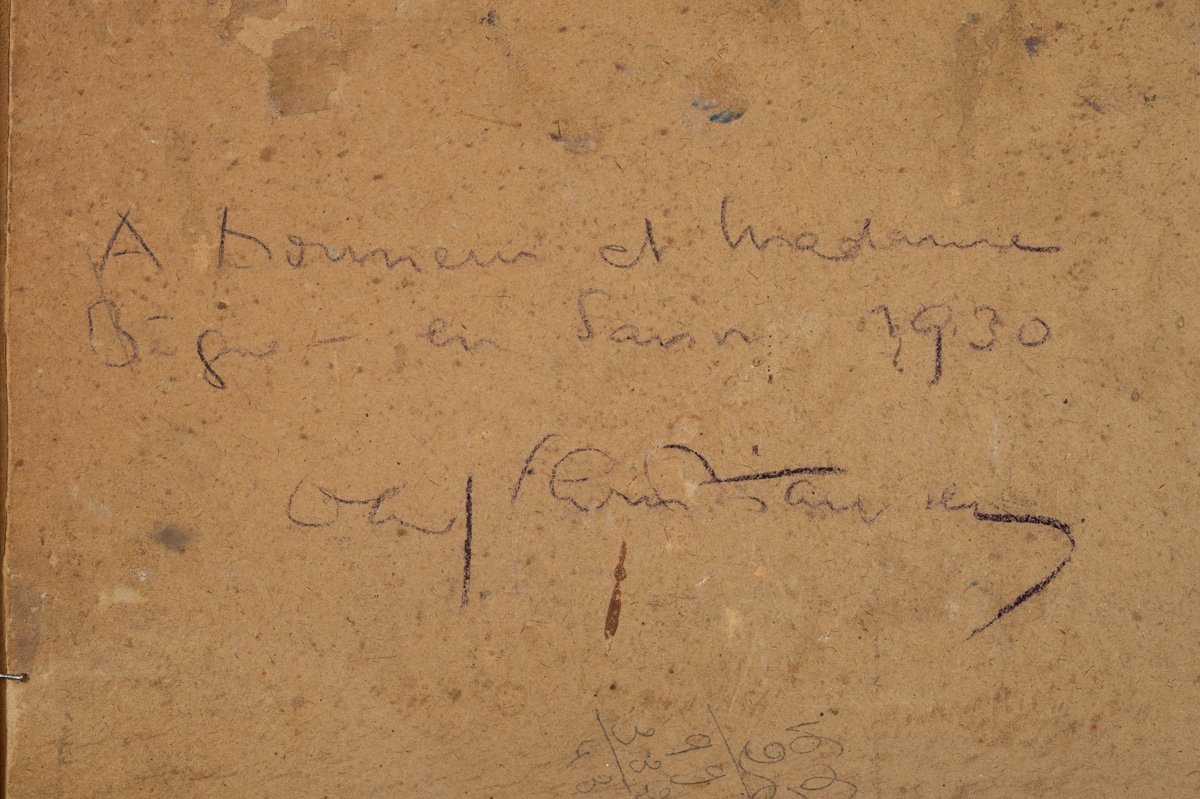 A Monsieur et Madame
Bègue - en Saison 1930
Olaf Christiansen